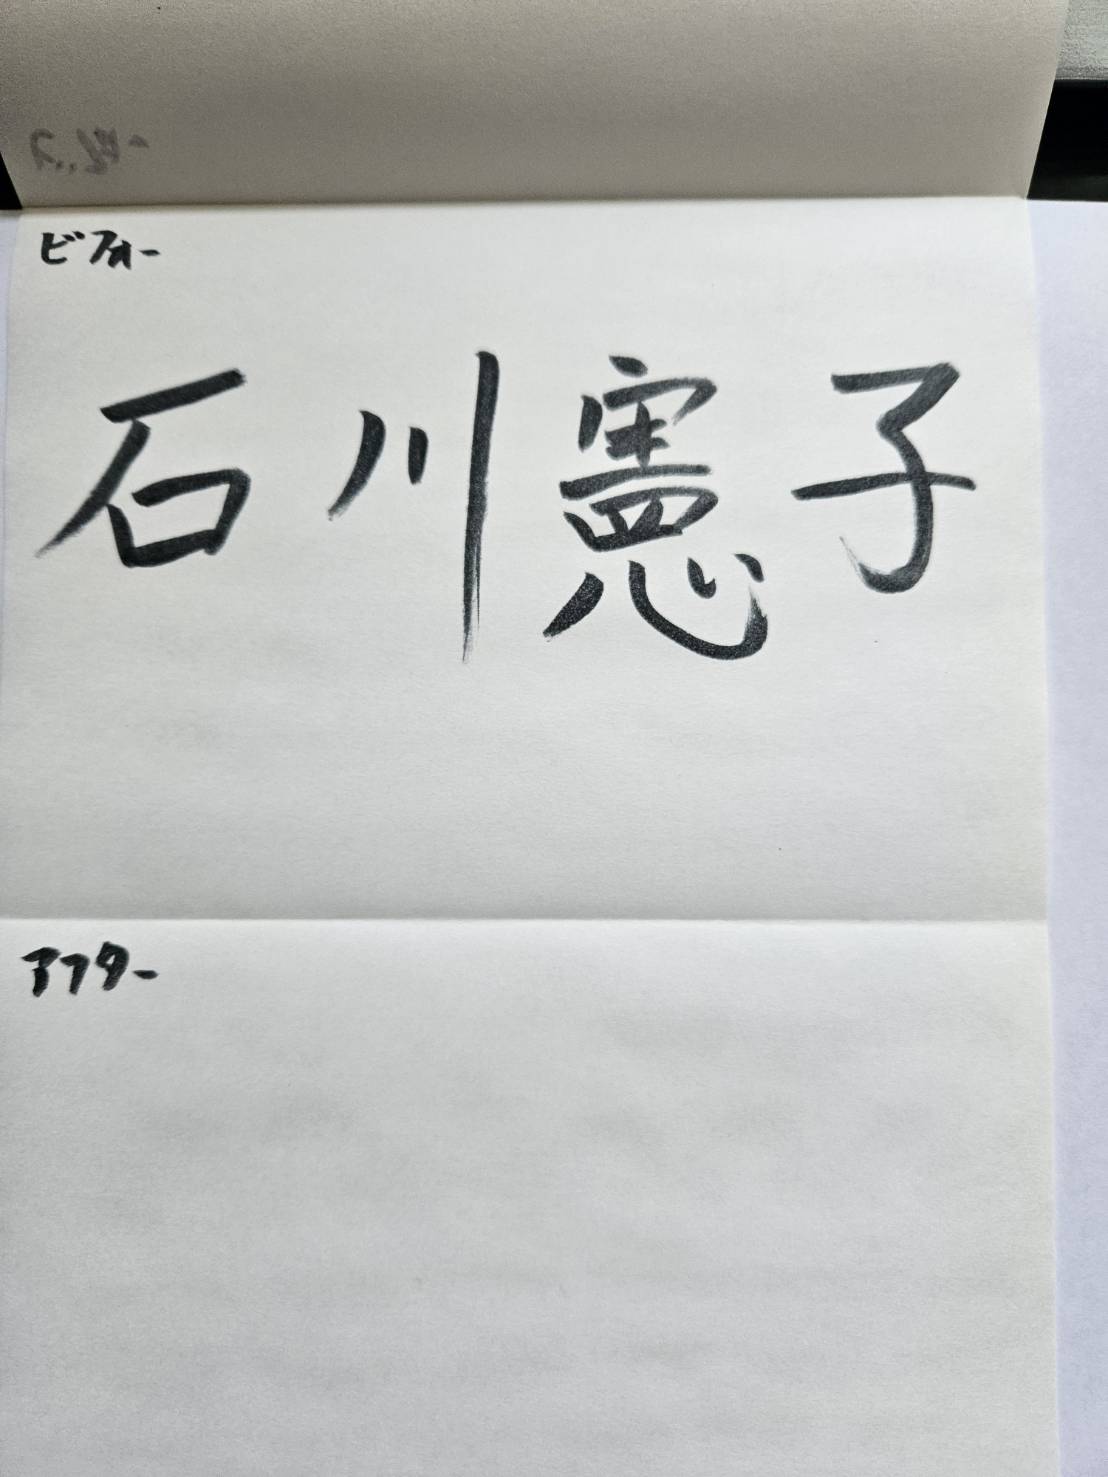 ビフォー
石川憲子
アフター